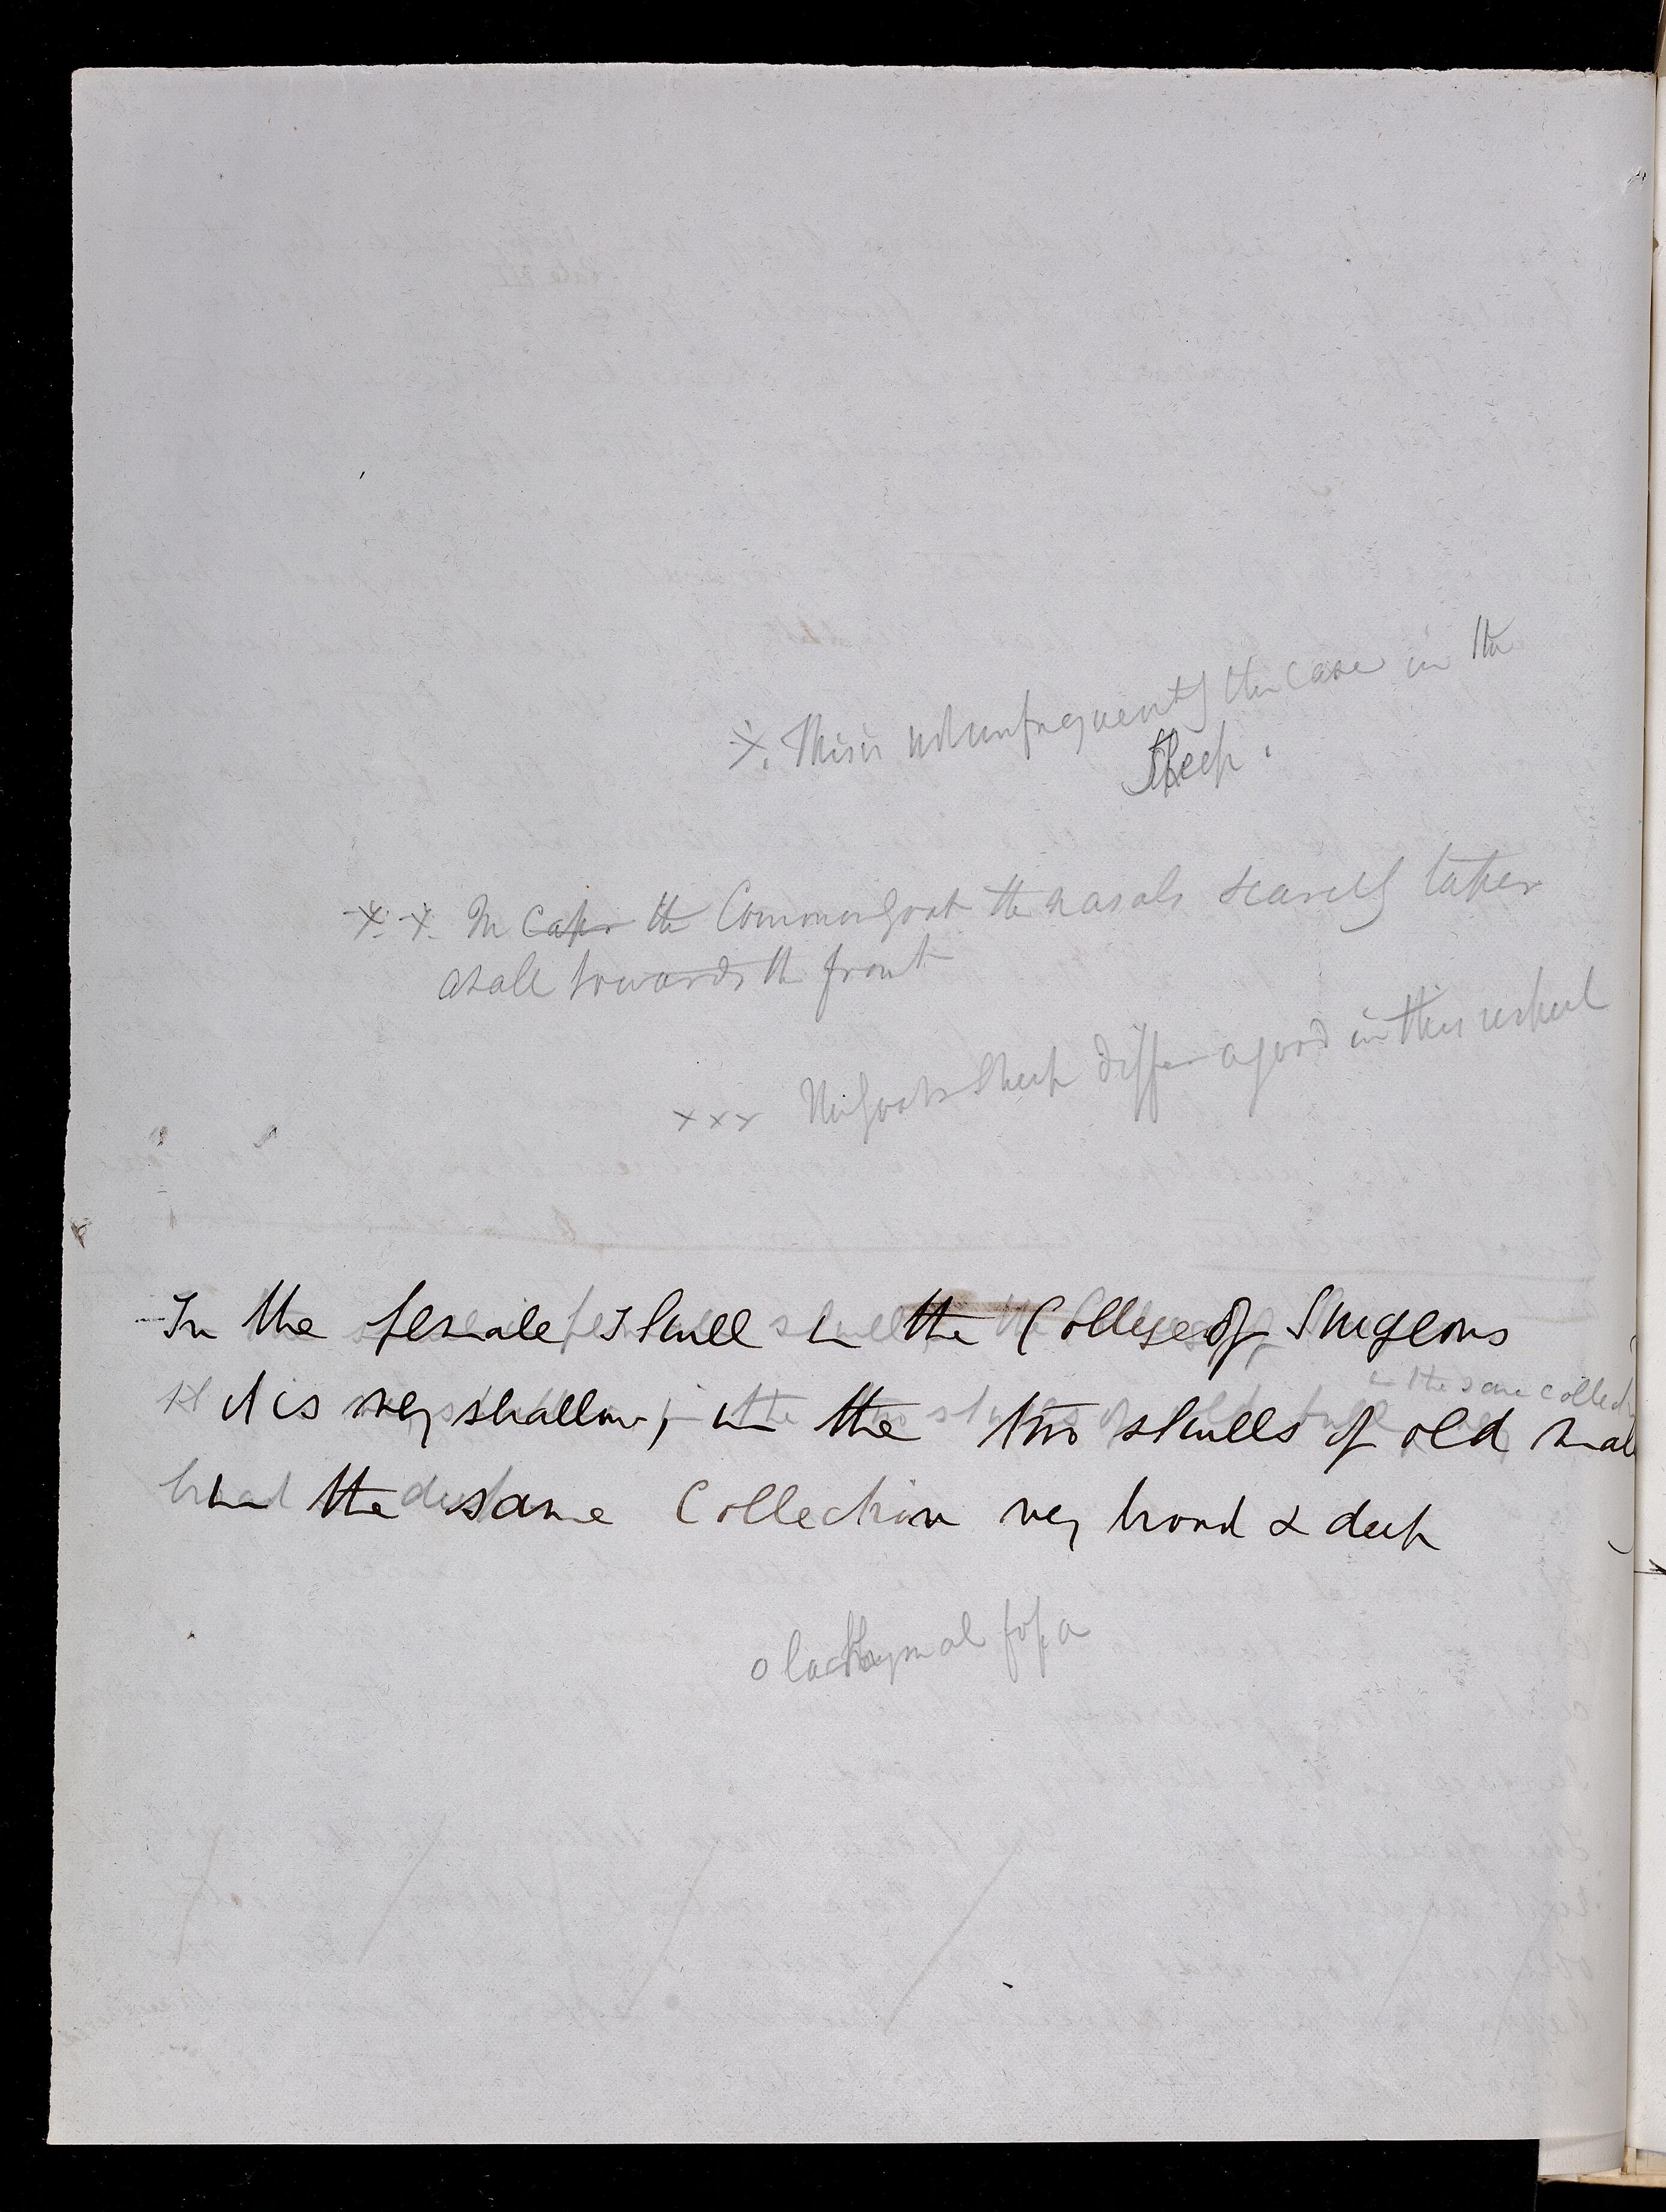 ※. This is not unfrequently the case in the
Sheep.
※.※. In Capr the Common Goat the nasals scarcely taper
at all towards the front
××× Sheep differ a good in this respect
In the female skull in the College of Surgeons
in the same collect
it is very shallow, in the two skulls of old male
in the same Collection very broad & deep
o lachrymal fossa